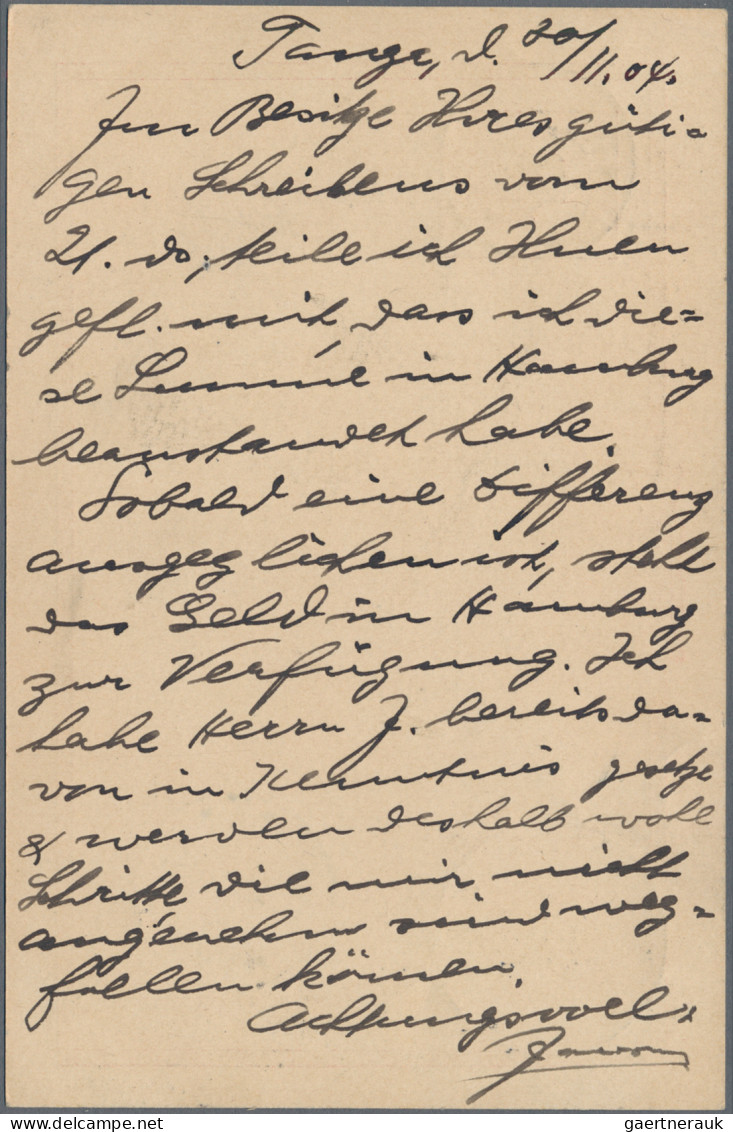 Tanga, d. 30/11.04.
Im Besitze Ihres güti=
gen Schreibens vom
21. ds, teile ich Ihnen
gefl. mit, dass ich die=
se Summe in Hamburg
beanstandet habe.
Sobald eine Differenz
ausgeglichen ist, steht
das Geld in Hamburg
zur Verfügung. Ich
habe Herrn J. bereits da=
von in Kenntnis gesetzt
& werden deshalb wohl
Schritte die mir nicht
angenehm sind weg=
fallen können.
Achtungsvoll
gaertnerauk